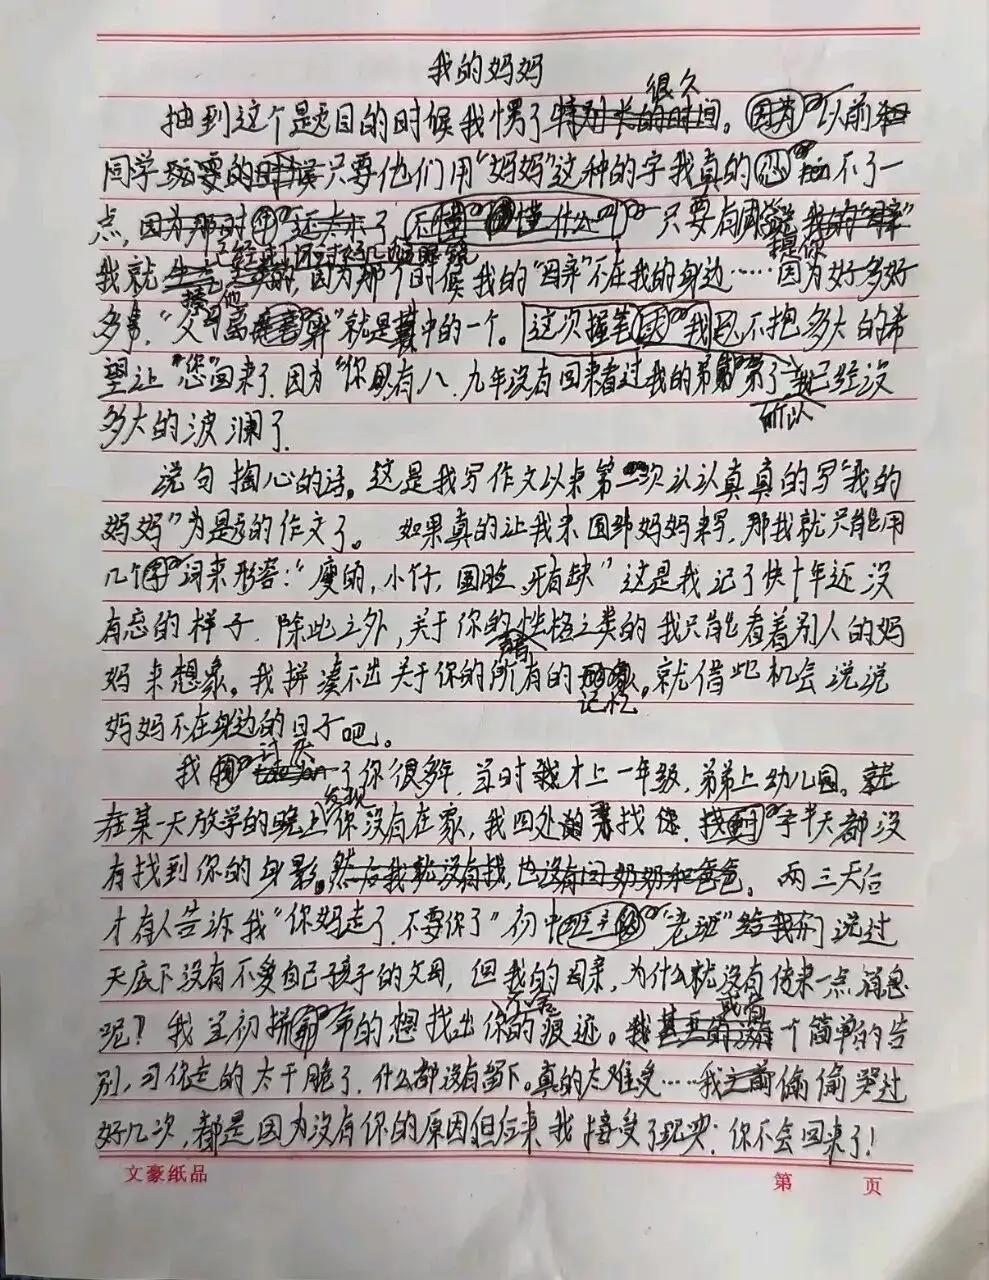 我的妈妈
很久
抽到这个题目的时候我愣了特别长的时间。因为以前和
同学玩耍的时候只要他们用“妈妈”这种的字我真的忍不了一
点，因为那时还未了 不懂 懂什么 只要有同学 我的“母亲”
提你
我就生气 的，因为那个时候我的“母亲”不在我的身边……因为好多好
多事，“父母离 ”就是其中的一个。这次握笔 我已不抱多大的希
望让“您”回来了，因为“你”有八、九年没有回来看过我的弟弟 了 我已经没
所以
多大的波澜了.
说句掏心的话。这是我写作文以来第一次认认真真的写“我的
妈妈”为题的作文了。如果真的让我来围绕妈妈来写，那我就只能用
几个字词来形容：“瘦的，小仔，圆脸，牙有缺”这是我记了快十年还没
有忘的样子. 除此之外，关于你的性格之类的我只能看着别人的妈
声音
妈来想象。我拼凑不出关于你的所有的 。就借此机会说说
记忆
妈妈不在身边的日子吧。
讨厌
我 了你很多年. 当时我才上一年级，弟弟上幼儿园。就
发现
在某一天放学的晚上你没有在家，我四处的寻找你. 找 半天都没
有找到你的身影。然后我就没有找，也没有问奶奶和爸爸。两三天后
才有人告诉我“你妈走了，不要你了”初中班主 “老班”给我们说过
天底下没有不爱自己孩子的父母，但我的母亲，为什么就没有传来一点消息
呢？我当初拼命的想找出你的痕迹。我甚至的没有个简单的告
或者
别，可你走的太干脆了，什么都没有留下。真的太难受……我之前偷偷哭过
好几次，都是因为没有你的原因但后来我接受了现实：你不会回来了！
文豪纸品
第 页